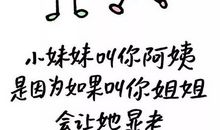 小妹妹叫你阿姨
是因为如果叫你姐姐
会让她显老